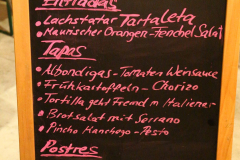 Entradas
• Lachstatar Tartaleta
• Maurischer Orangen-Fenchel Salat
Tapas
• Albondigas - Tomaten Weinsauce
• Frühkartoffeln - Chorizo
• Tortilla geht Fremd n Italiener
• Brotsalat mit Serrano
• Pincho Manchego - Pesto
Postres